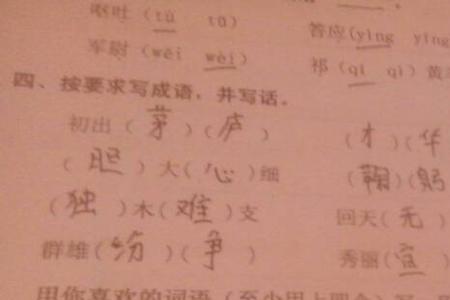 呕吐（tù tū） 答应(yìng yīng
军尉（wēi wèi） 祁（qí qì）黄
四、按要求写成语，并写话。
初出（茅）（庐） （才）（华
（胆）大（心）细 （鞠）（躬
（独）木（难）支 回天（无）
群雄（纷）（争） 秀丽（宜）
用你喜欢的词语（至少用上四个）